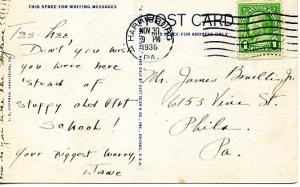 THIS SPACE FOR WRITING MESSAGES
POST CARD
THIS SPACE FOR ADDRESS ONLY
HARRISBURG
NOV 30
9 PM
1936
PA.
1
Tee-hee,
Don't you wish
you were here
'stead of
stuffy old Art
School!
Your biggest worry,
Jane
Mr. James
6153 Vine St.
Phila.
Pa.